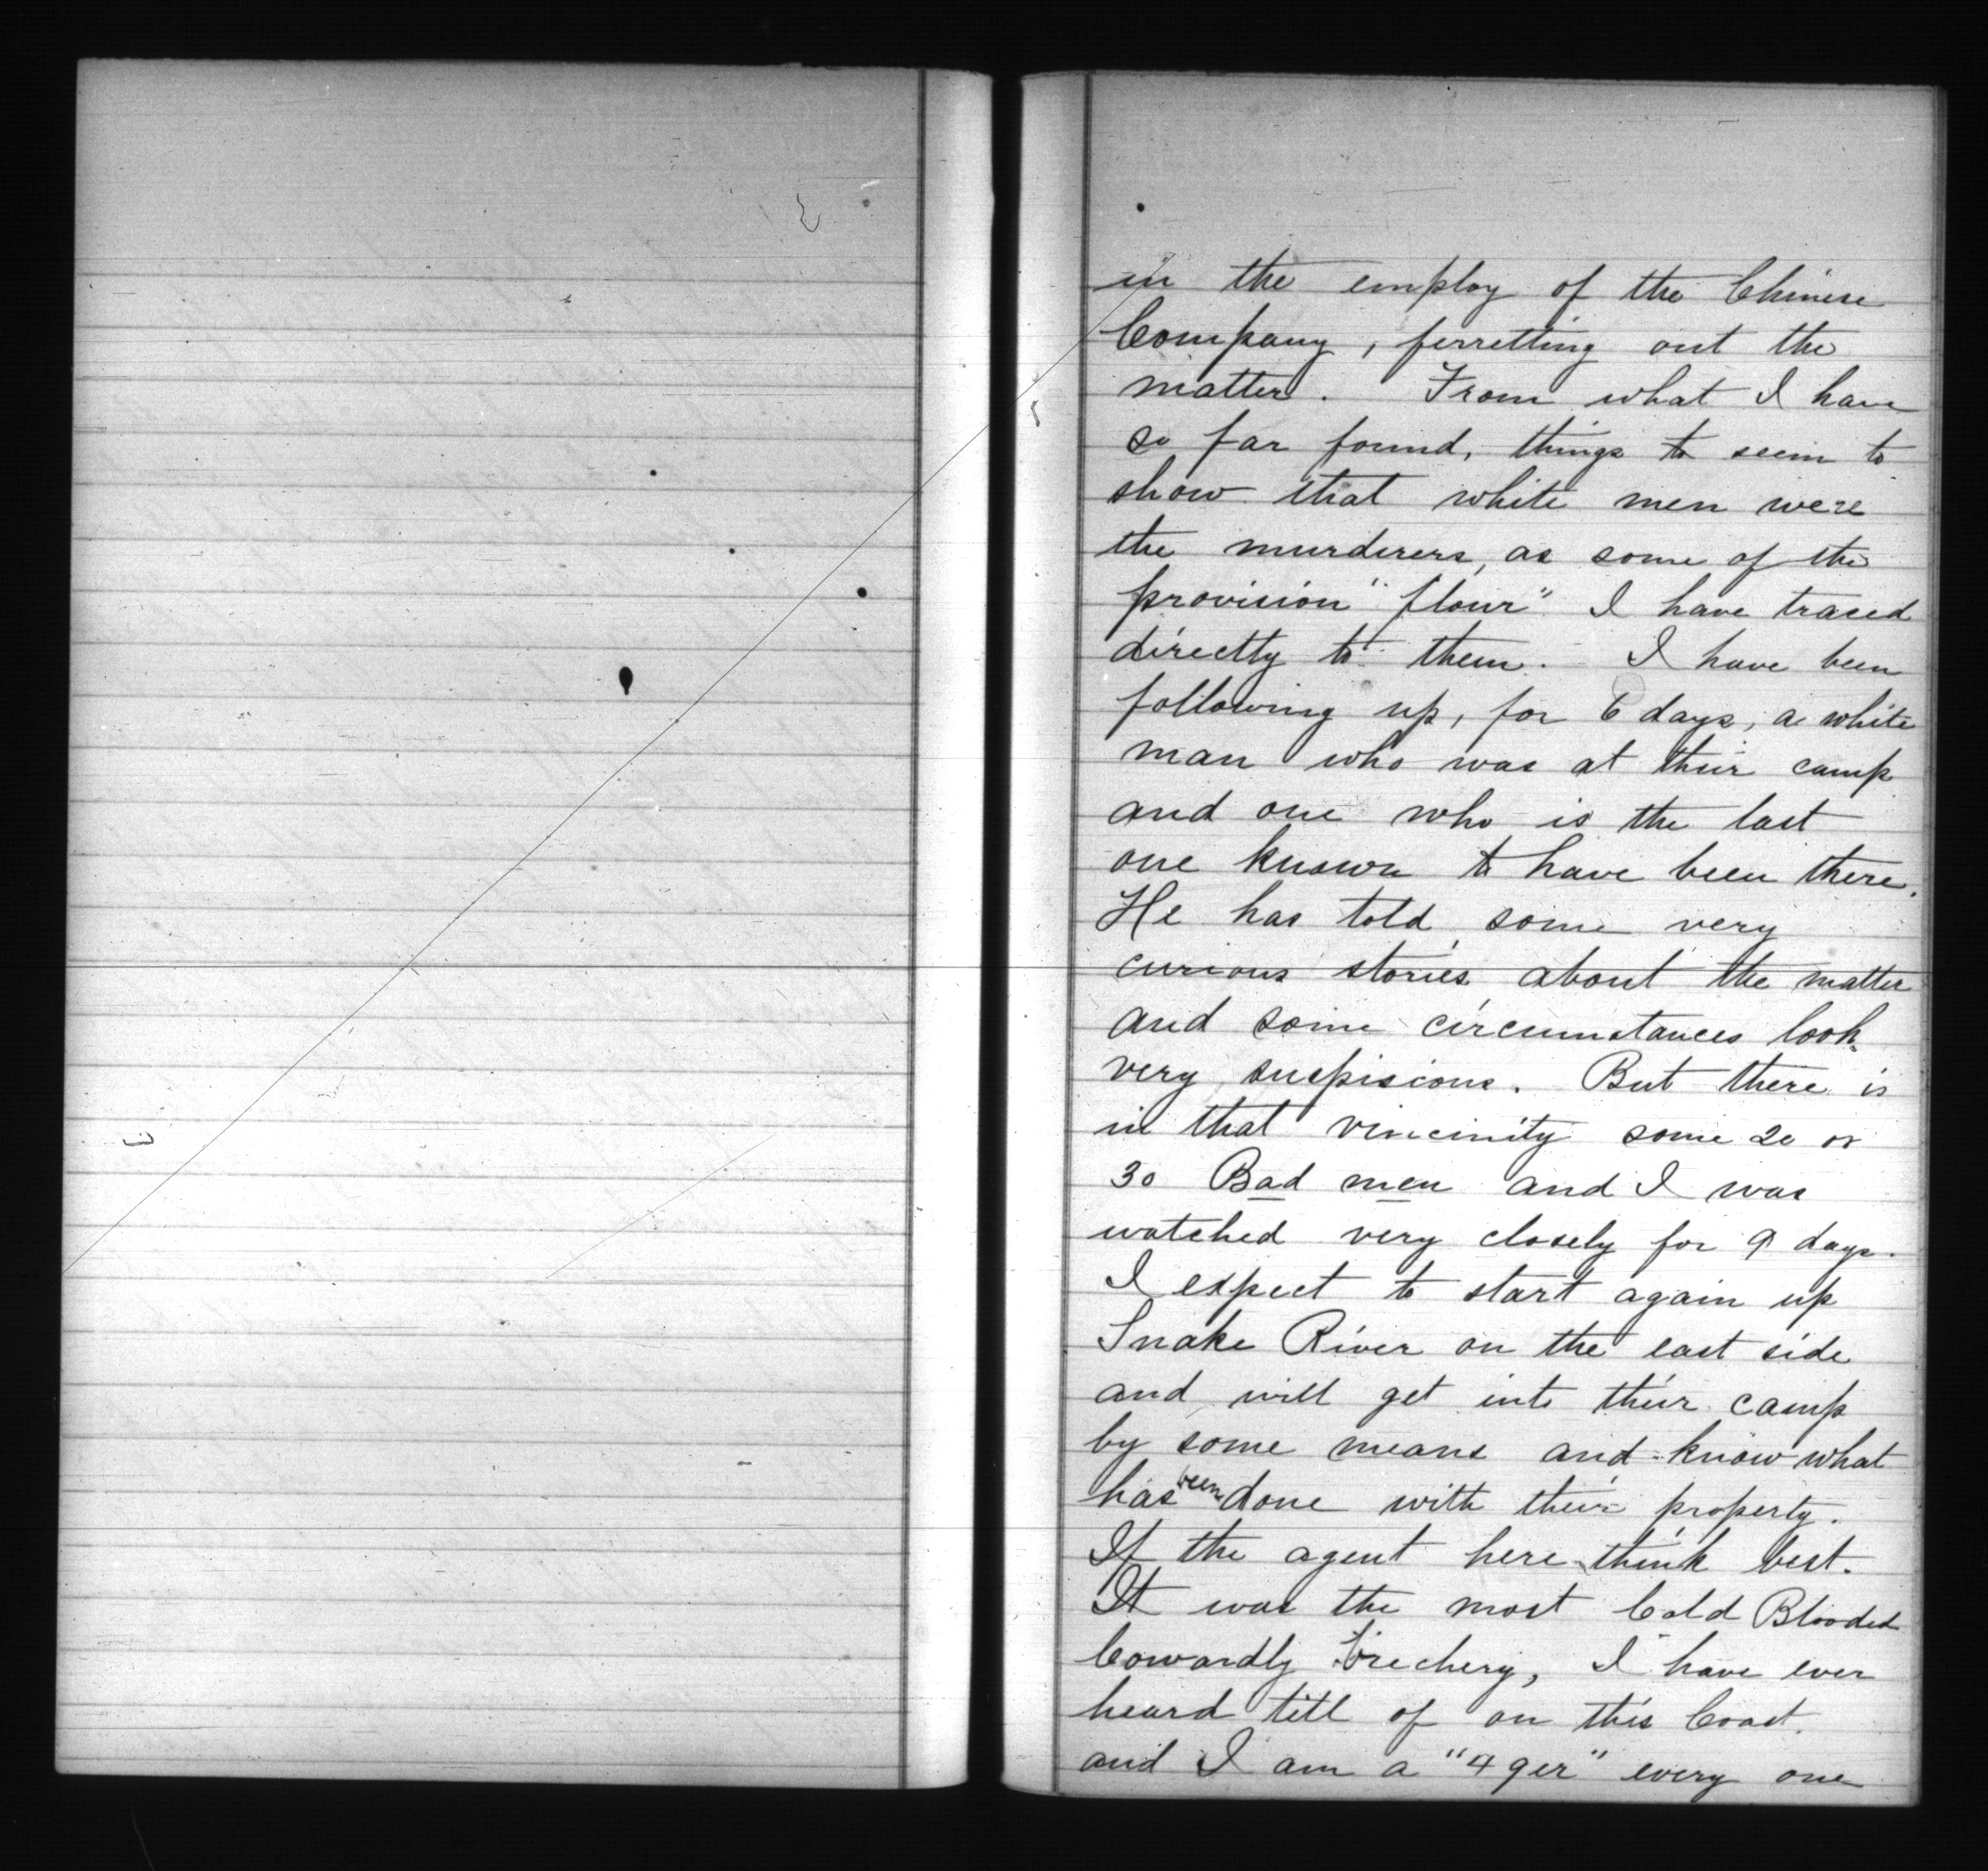 in the employ of the Chinese
Company, ferretting out the
matter. From what I have
so far found, things to seem to
show that white men were
the murderers, as some of the
provision "flour" I have traced
directly to them. I have been
following up, for 6 days, a white
man who was at their camp
and one who is the last
one known to have been there.
He has told some very
curious stories about the matter
and some circumstances look
very suspisious. But there is
in that vincinity some 20 or
30 Bad men and I was
watched very closely for 9 days.
I expect to start again up
Snake River on the east side
and will get into their camp
by some means and know what
has been done with their property.
If the agent here think best.
It was the most Cold Blooded
Cowardly Trechery, I have ever
heard tell of on this Coast.
and I am a "49er" every one